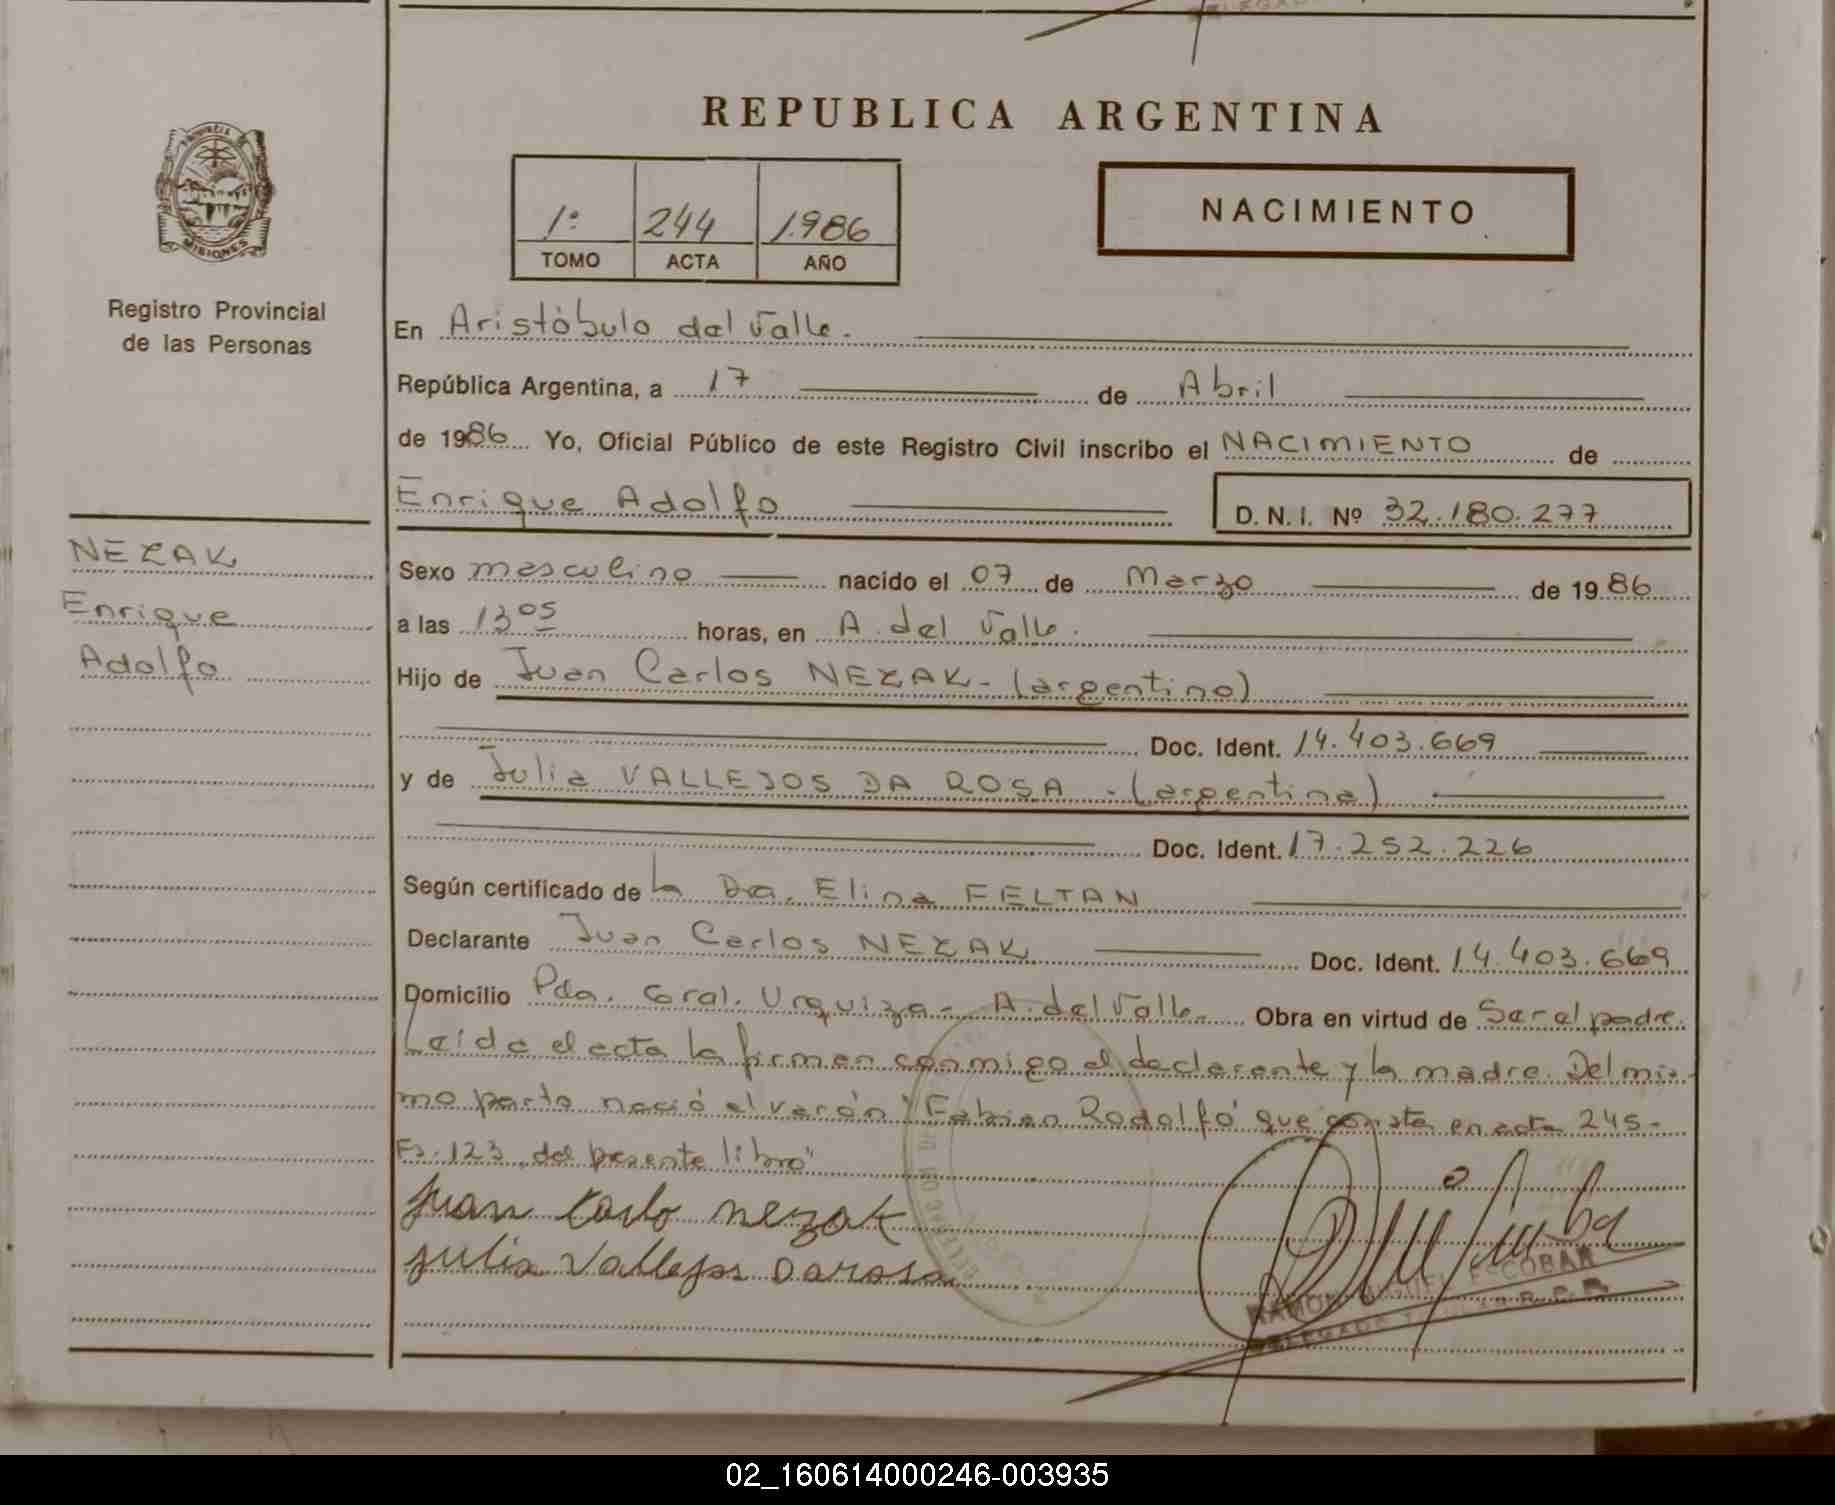 REPUBLICA ARGENTINA
PROVINCIA DE
MISIONES
Registro Provincial
de las Personas
1º 244 1.986
TOMO ACTA AÑO
NACIMIENTO
En Aristóbulo del Valle.
República Argentina, a 17 de Abril
de 1986 Yo, Oficial Público de este Registro Civil inscribo el NACIMIENTO de
Enrique Adolfo D. N. I. Nº 32.180.277
NEZAK
Enrique
Adolfo
Sexo masculino nacido el 07 de Marzo de 1986
a las 13 05 horas, en A. del Valle.
Hijo de Juan Carlos NEZAK - (argentino)
Doc. Ident. 14.403.669
y de Julia VALLEJOS DA ROSA - (argentina)
Doc. Ident. 17.252.226
Según certificado de la Dra. Elina FELTAN
Declarante Juan Carlos NEZAK Doc. Ident. 14.403.669
Domicilio Pda. Gral. Urquiza - A. del Valle - Obra en virtud de Ser el padre.
Leída el acta la firman conmigo el declarante y la madre. Del mis-
mo parto nació el varón "Fabian Rodolfo" que consta en acta 245-
Fs. 123 del presente libro"
Juan Carlo nezak
Julia Vallejos Darosa
RAMON MIGUEL ESCOBAR
DELEGADO TITULAR R. P. P.
02_160614000246-003935